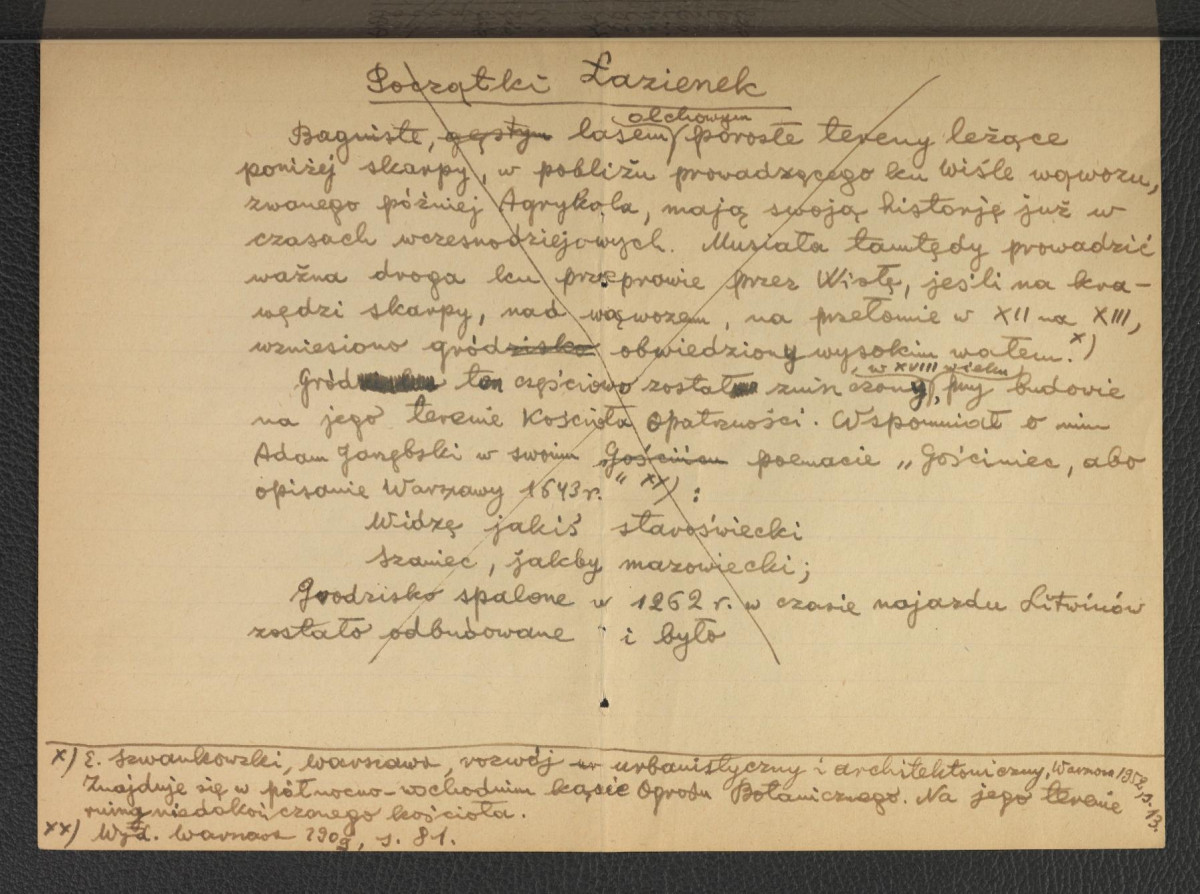 Początki Łazienek
Bagniste, gęstym lasem olchowym porosłe tereny leżące
poniżej skarpy, w pobliżu prowadzącego ku Wiśle wąwozu,
zwanego później Agrykola, mają swoją historję już w
czasach wczesnodziejowych. Musiała tamtędy prowadzić
ważna droga ku przeprawie przez Wisłę, jeśli na kra-
wędzi skarpy, nad wąwozem, na przełomie w XII na XIII,
wzniesiono gródzisko obwiedziony wysokim wałem. x)
Gród ten częściowo został zniszczony w XVIII wieku, przy budowie
na jego terenie Kościoła Opatrzności. Wspomniał o nim
Adam Jarzębski w swoim Gościńcu poemacie „Gościniec, abo
opisanie Warszawy 1643r." xx) :
Widzę jakiś staroświecki
szaniec, jakby mazowiecki;
Grodzisko spalone w 1262 r. w czasie najazdu Litwinów
zostało odbudowane i było
x) E. Szwankowski, Warszawa, rozwój ur urbanistyczny i architektoniczny, Warszawa 1952, s. 13.
Znajduje się w północno-wschodnim kącie Ogrodu Botanicznego. Na jego terenie
ruiny niedokończonego kościoła.
xx) Wyd. Warszawa 1909, s. 81.